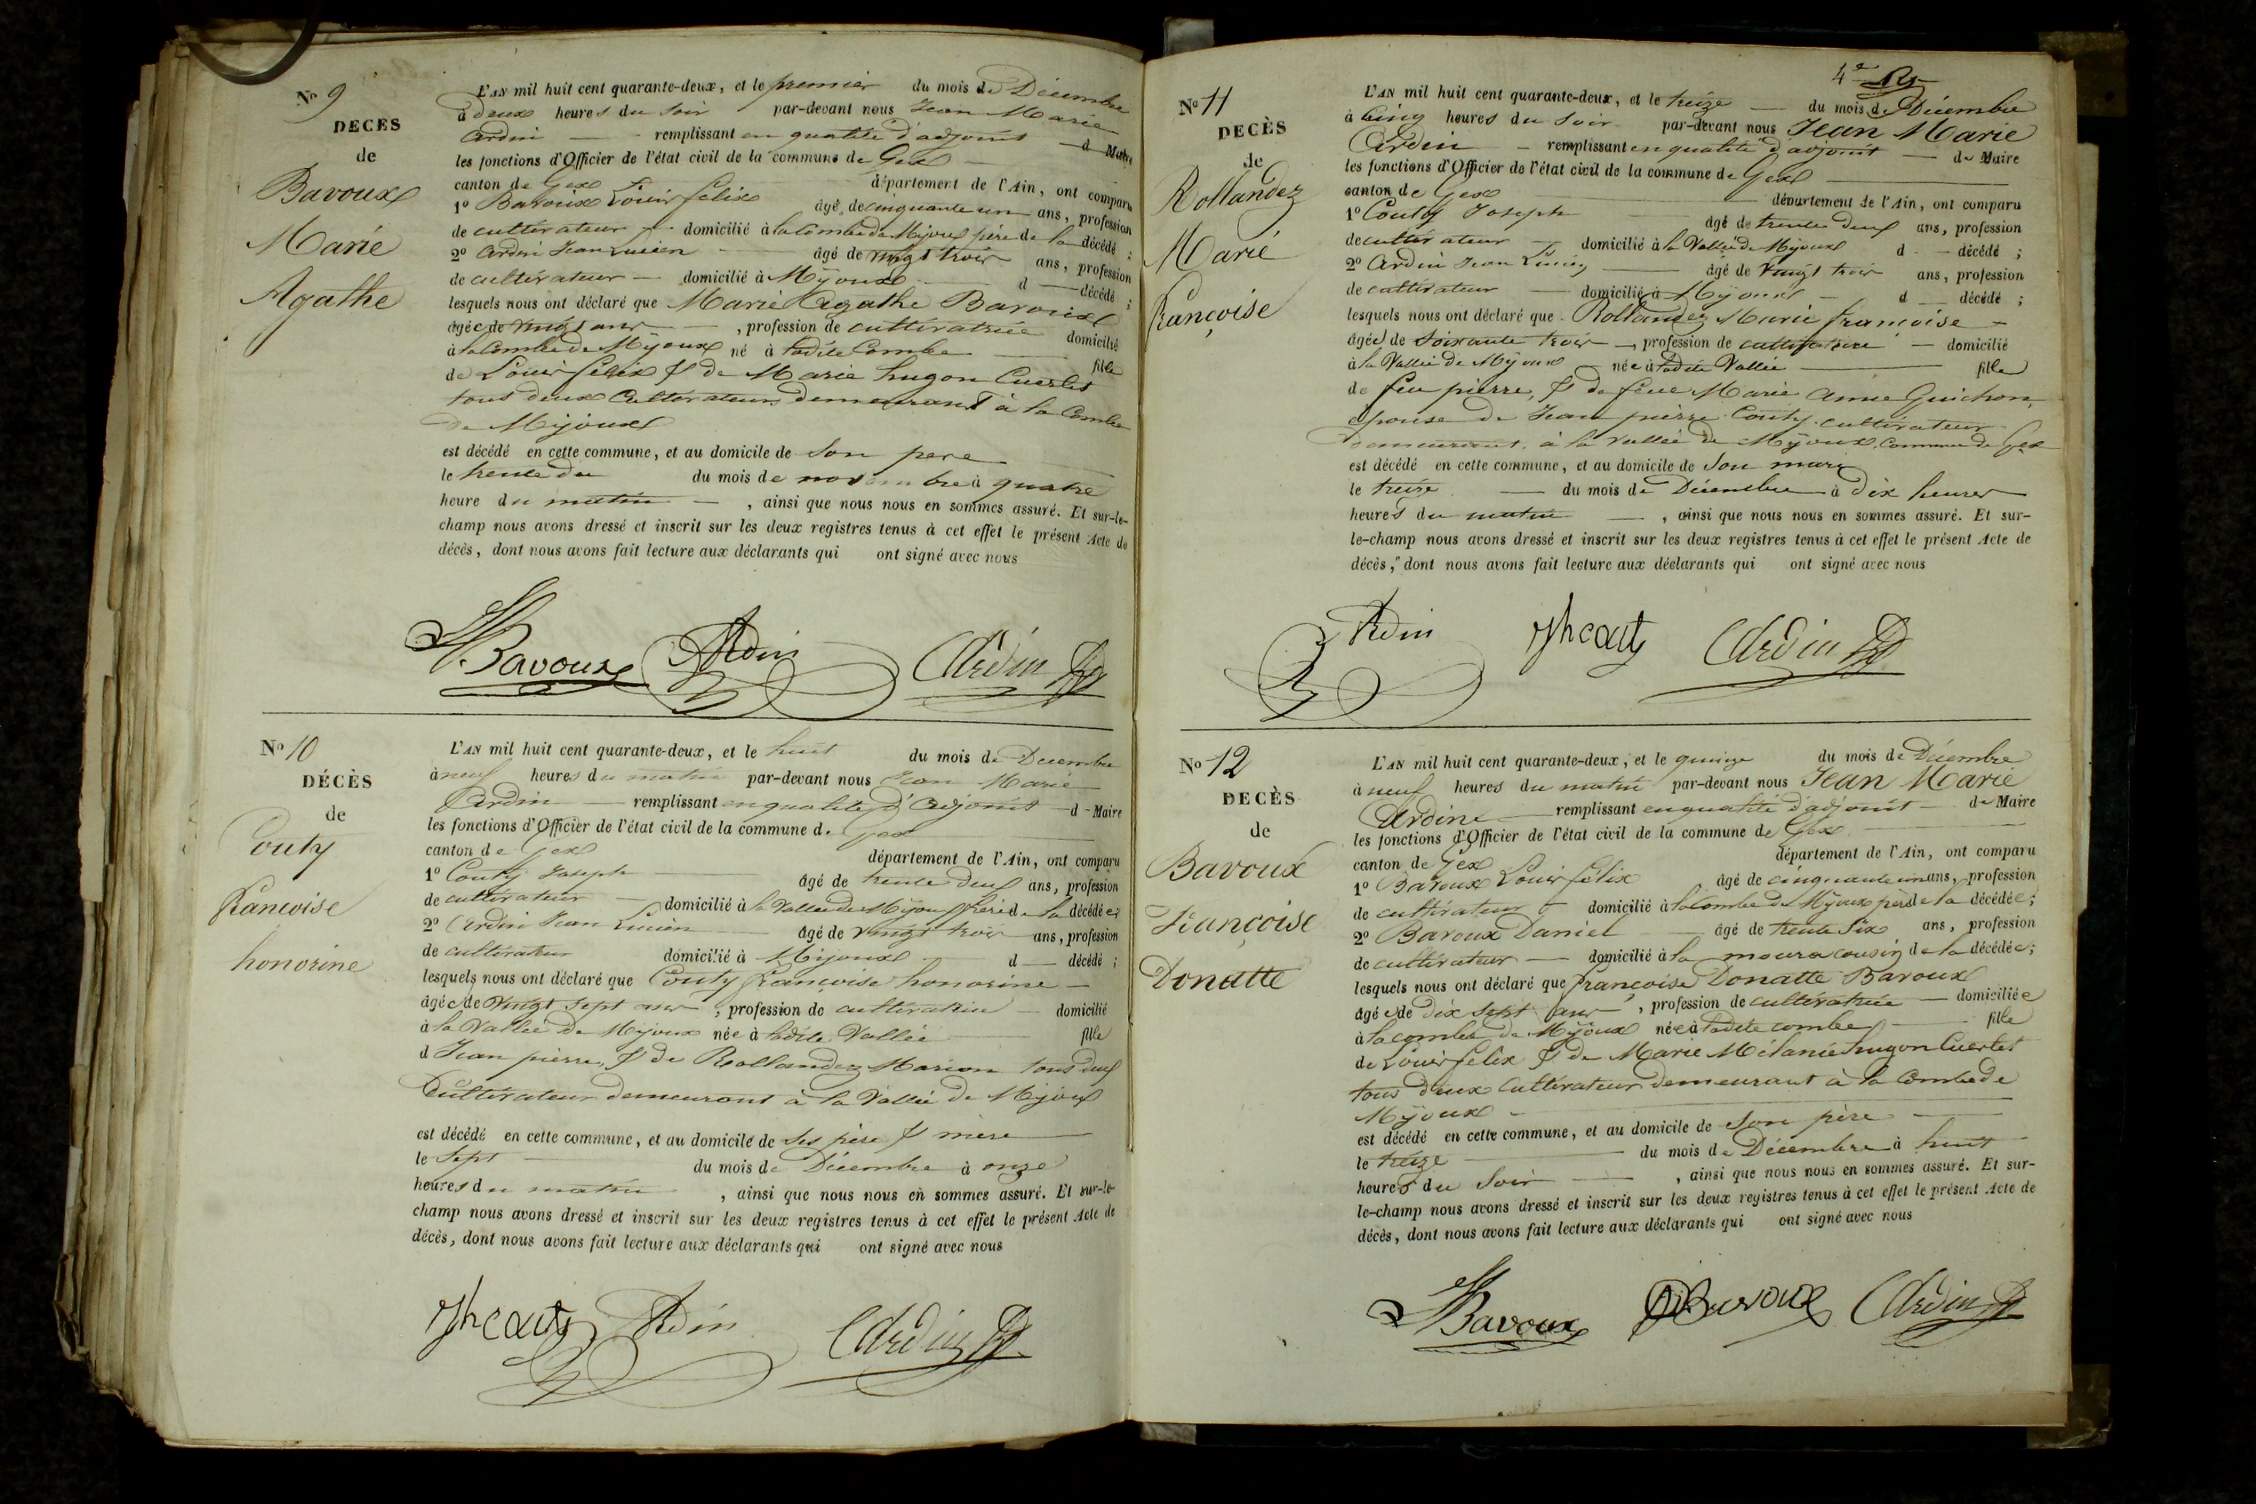 No 9
DECES
de
Bavoux
Marie
Agathe
L'AN mil huit cent quarante-deux, et le premier du mois de Décembre
à deux heures du soir par-devant nous Jean Marie
Ardin remplissant en qualité d'adjoint d Maire
les fonctions d'Officier de l'état civil de la commune de Gex
canton de Gex département de l'Ain, ont comparu
1o Bavoux Louis félix âgé de cinquante un ans, profession
de cultivateur domicilié à la Combe de Mijoux père de la décédé ;
2o Ardin Jean Lucien âgé de vingt trois ans, profession
de cultivateur domicilié à Mijoux d décédé ;
lesquels nous ont déclaré que Marie Agathe Bavoux
âgée de vingt ans , profession de cultivatrice domicilié
à la Combe de Mijoux né à ladite Combe fille
de Louis félix & de Marie hugon Cuerlet
tous deux Cultivateurs demeurant à la Combe
de Mijoux
est décédé en cette commune, et au domicile de son pere
le trente du du mois de novembre à quatre
heure du matin , ainsi que nous nous en sommes assuré. Et sur-le-
champ nous avons dressé et inscrit sur les deux registres tenus à cet effet le présent Acte de
décès, dont nous avons fait lecture aux déclarants qui ont signé avec nous
Bavoux Ardin Ardin
No 10
DÉCÈS
de
Couty
francoise
honorine
L'AN mil huit cent quarante-deux, et le huit du mois de Decembre
à neuf heures du matin par-devant nous Jean Marie
Ardin remplissant en qualité d'Adjoint d Maire
les fonctions d'Officier de l'état civil de la commune d. Gex
canton de Gex département de l'Ain, ont comparu
1o Couty Joseph âgé de trente deux ans, profession
de cultivateur domicilié à la Vallée de Mijoux frère de la décédée ;
2o Ardin Jean Lucien âgé de vingt trois ans, profession
de cultivateur domicilié à Mijoux d décédé ;
lesquels nous ont déclaré que Couty francoise honorine
âgée de vingt sept ans , profession de cultivatrice domicilié
à la Vallée de Mijoux née à ladite Vallée fille
d Jean pierre, & de Rollandez Marion tous deux
Cultivateur demeurant à la Vallée de Mijoux
est décédé en cette commune, et au domicile de ses père & mère
le sept du mois de Décembre à onze
heures du matin , ainsi que nous nous en sommes assuré. Et sur-le-
champ nous avons dressé et inscrit sur les deux registres tenus à cet effet le présent Acte de
décès, dont nous avons fait lecture aux déclarants qui ont signé avec nous
Jh couty Ardin Ardin
4e
No 11
DECÈS
de
Rollandez
Marie
françoise
L'AN mil huit cent quarante-deux, et le treize du mois de Décembre
à Cinq heures du soir par-devant nous Jean Marie
Ardin remplissant en qualité d'adjoint de Maire
les fonctions d'Officier de l'état civil de la commune de Gex
canton de Gex département de l'Ain, ont comparu
1o Couty Joseph âgé de trente deux ans, profession
de cultivateur domicilié à la Vallée de Mijoux d décédé ;
2o Ardin Jean Lucien âgé de vingt trois ans, profession
de cultivateur domicilié à Mijoux d décédé ;
lesquels nous ont déclaré que Rollandez Marie françoise
âgée de soixante trois , profession de cultivatrice domicilié
à la Vallée de Mijoux née à ladite Vallée fille
de feu pierre, & de feue Marie Anne Guichon,
épouse de Jean pierre Couty cultivateur
demeurant à la Vallée de Mijoux Commune de Gex
est décédé en cette commune, et au domicile de son mari
le treize du mois de Décembre à dix heures
heures du matin , ainsi que nous nous en sommes assuré. Et sur-
le-champ nous avons dressé et inscrit sur les deux registres tenus à cet effet le présent Acte de
décès, dont nous avons fait lecture aux déclarants qui ont signé avec nous
Ardin Jh couty Ardin
No 12
DECÈS
de
Bavoux
françoise
Donatte
L'AN mil huit cent quarante-deux, et le quinze du mois de Décembre
à neuf heures du matin par-devant nous Jean Marie
Ardin remplissant en qualité d'adjoint de Maire
les fonctions d'Officier de l'état civil de la commune de Gex
canton de Gex département de l'Ain, ont comparu
1o Bavoux Louis félix âgé de cinquante un ans, profession
de cultivateur domicilié à la Combe de Mijoux père de la décédée ;
2o Bavoux Daniel âgé de trente six ans, profession
de cultivateur domicilié à la moura cousin de la décédée ;
lesquels nous ont déclaré que françoise Donatte Bavoux
âgée de dix sept ans , profession de cultivatrice domiciliée
à la combe de Mijoux née à ladite combe fille
de Louis félix & de Marie Mélanie hugon Cuerlet
tous deux Cultivateur demeurant à la Combe de
Mijoux
est décédé en cette commune, et au domicile de son père
le treize du mois de Décembre à huit
heures du soir , ainsi que nous nous en sommes assuré. Et sur-
le-champ nous avons dressé et inscrit sur les deux registres tenus à cet effet le présent Acte de
décès, dont nous avons fait lecture aux déclarants qui ont signé avec nous
Bavoux DBavoux Ardin